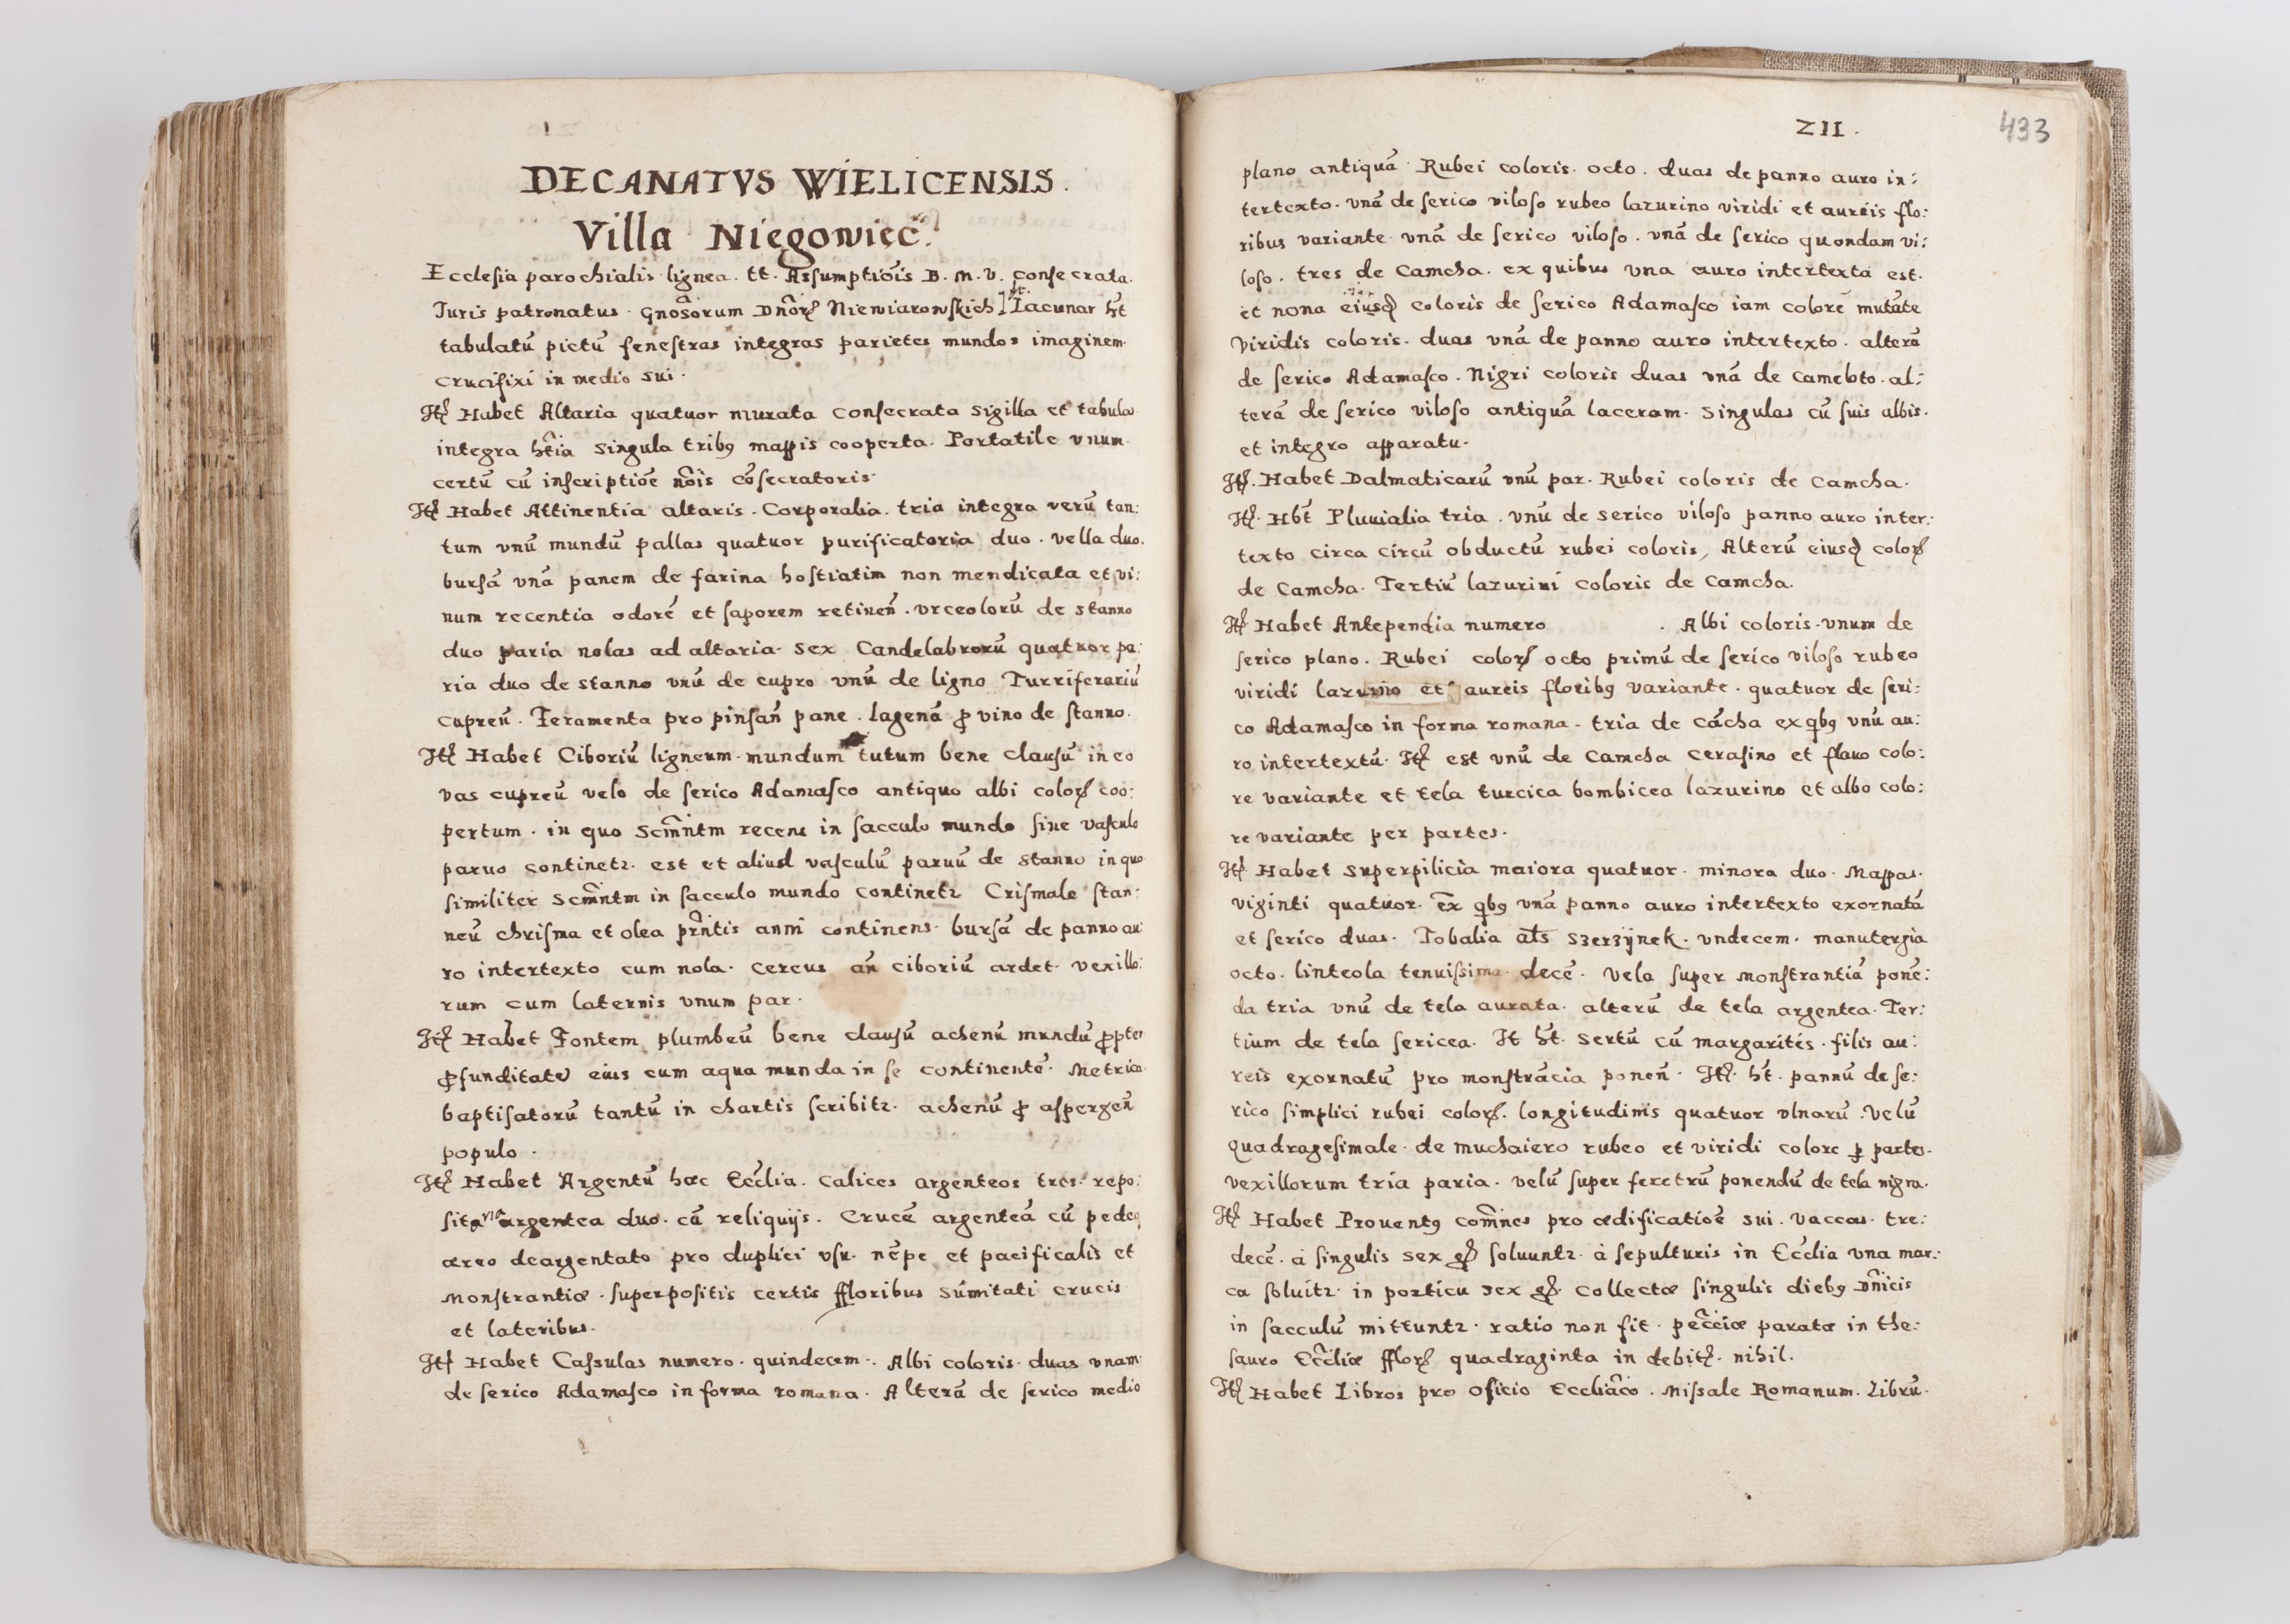 DECANATVS WIELICENSIS.
Villa Niegowiec.
Ecclesia parochialis lignea. tt. Assumptiõis B. M. V. consecrata.
Juris patronatus Gnõsorum Dnõrꝭ Niewiarowskich] Lacunar ht̃
tabulatũ pictũ fenestras integras parietes mundos imaginem
crucifixi in medio sui.
Itꝭ Habet Altaria quatuor murata consecrata sigilla et tabulas
integra hñtia singula tribꝯ mappis cooperta. Portatile vnum
certũ cũ inscriptiõe nõis cõsecratoris
Itꝭ Habet Attinentia altaris. Corporalia. tria integra verũ tan:
tum vnũ mundũ pallas quatuor purificatoria duo. vella duo.
bursã vnã panem de farina hostiatim non mendicata et vi:
num recentia odorẽ et saporem retineñ. vrceolorũ de stanno
duo paria nolas ad altaria. sex Candelabrorũ quatuor pa:
ria duo de stanno vnũ de cupro vnũ de ligno Turriferariũ
cupreũ. Feramenta pro pinsañ pane. lagenã ꝓ vino de stanno.
Itꝭ Habet Ciboriũ ligneum mundum tutum bene clausũ in eo
vas cupreũ velo de serico Adamasco antiquo albi colorꝭ coo:
pertum. in quo Scm̃ntm recens in sacculo mundo sine vasculo
paruo continetꝛ. est et aliud vasculũ paruũ de stanno in quo
similiter scm̃ntm in sacculo mundo continetꝛ Crismale stan:
neũ chrisma et olea pñtis anni continens. bursã de panno au:
ro intertexto cum nola. cereus añ ciboriũ ardet. vexillo:
rum cum laternis vnum par.
Itꝭ Habet Fontem plumbeũ bene clausũ achenũ mundũ ꝓpter
ꝓfunditatẽ eius cum aqua munda in se continentẽ. Metrica
baptisatorũ tantũ in chartis scribitꝛ. achenũ ꝓ aspergeñ
populo.
Itꝭ Habet Argentũ hæc Ecc̃lia. Calices argenteos tres. repo:
sitoria argentea duo. cũ reliquijs. Crucẽ argenteã cũ pede
æreo deargentato pro duplici vsu. nẽpe et pacificalis et
Monstrantiæ. superpositis certis ffloribus sũmitati crucis
et lateribus.
Itꝭ Habet Cassulas numero. quindecem. Albi coloris. duas vnam
de serico Adamasco in forma romana. Alterã de serico medio
ZII.
433
plano antiquã. Rubei coloris. octo. duas de panno auro in:
tertexto. vnã de serico viloso rubeo lazurino viridi et aureis flo:
ribus variante vnã de serico viloso. vnã de serico quondam vi:
loso. tres de Camcha. ex quibus vna auro intertexta est.
et nona eiusdꝭ coloris de serico Adamasco iam colore mutate
viridis coloris. duas vnã de panno auro intertexto. alterã
de serico Adamasco. Nigri coloris duas vnã de Cameloto. al:
terã de serico viloso antiquã laceram. Singulas cũ suis albis.
et integro apparatu.
Itꝭ. Habet Dalmaticarũ vnũ par. Rubei coloris de Camcha.
Itꝭ. Hb̃t Pluuialia tria. vnũ de serico viloso panno auro inter:
texto circa circũ obductũ rubei coloris, Alterũ eiusdꝭ colorꝭ
de Camcha. Tertiũ lazurini coloris de Camcha.
Itꝭ Habet Antependia numero . Albi coloris. vnum de
serico plano. Rubei colorꝭ octo primũ de serico viloso rubeo
viridi lazurino et aureis floribꝯ variante. quatuor de seri:
co Adamasco in forma romana. tria de Cãcha ex qbꝯ vnũ au:
ro intertextũ. Itꝭ est vnũ de Camcha cerasino et flauo colo:
re variante et tela turcica bombicea lazurino et albo colo:
re variante per partes.
Itꝭ. Habet Superpilicia maiora quatuor. minora duo. Mappas.
viginti quatuor. ex qbꝯ vnã panno auro intertexto exornatã
et serico duas. Tobalia als̃ szerzÿnek. vndecem. manutergia
octo. linteola tenuissima decẽ. Vela super monstrantiã ponẽ:
da tria vnũ de tela aurata. alterũ de tela argentea. Ter:
tium de tela sericea. It ht̃. Sertũ cũ margaritẽs. filis au:
reis exornatũ pro monstrãcia poneñ. Itꝭ. ht̃. pannũ de se:
rico simplici rubei colorꝭ. longitudinis quatuor vlnarũ. Velũ
quadragesimale. de muchaiero rubeo et viridi colore ꝑ partes.
vexillorum tria paria. velũ super feretrũ ponendũ de tela nigra.
Itꝭ Habet Prouentꝯ com̃nes pro ædificatiõe sui. Vaccas. tre:
decẽ. à singulis sex gꝭ soluuntꝛ. à sepulturis in Ecc̃lia vna mar:
ca soluitꝛ. in porticu sex gꝭ. Collectæ singulis diebꝯ Dñicis
in sacculũ mittuntꝛ. ratio non fit. pecc̃iæ paratæ in the:
sauro Ecc̃liæ fflorꝭ quadraginta in debitꝭ. nihil.
Itꝭ Habet Libros pro oficio Eccliãco. Missale Romanum. Librũ.